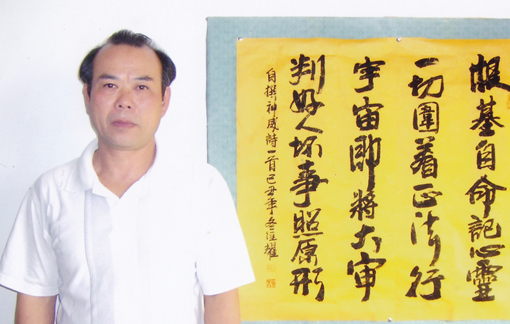 根基自命記心靈
一切圍着正法行
宇宙即將大审
判好人坏事照原形
自撰神威詩一首己丑年冬